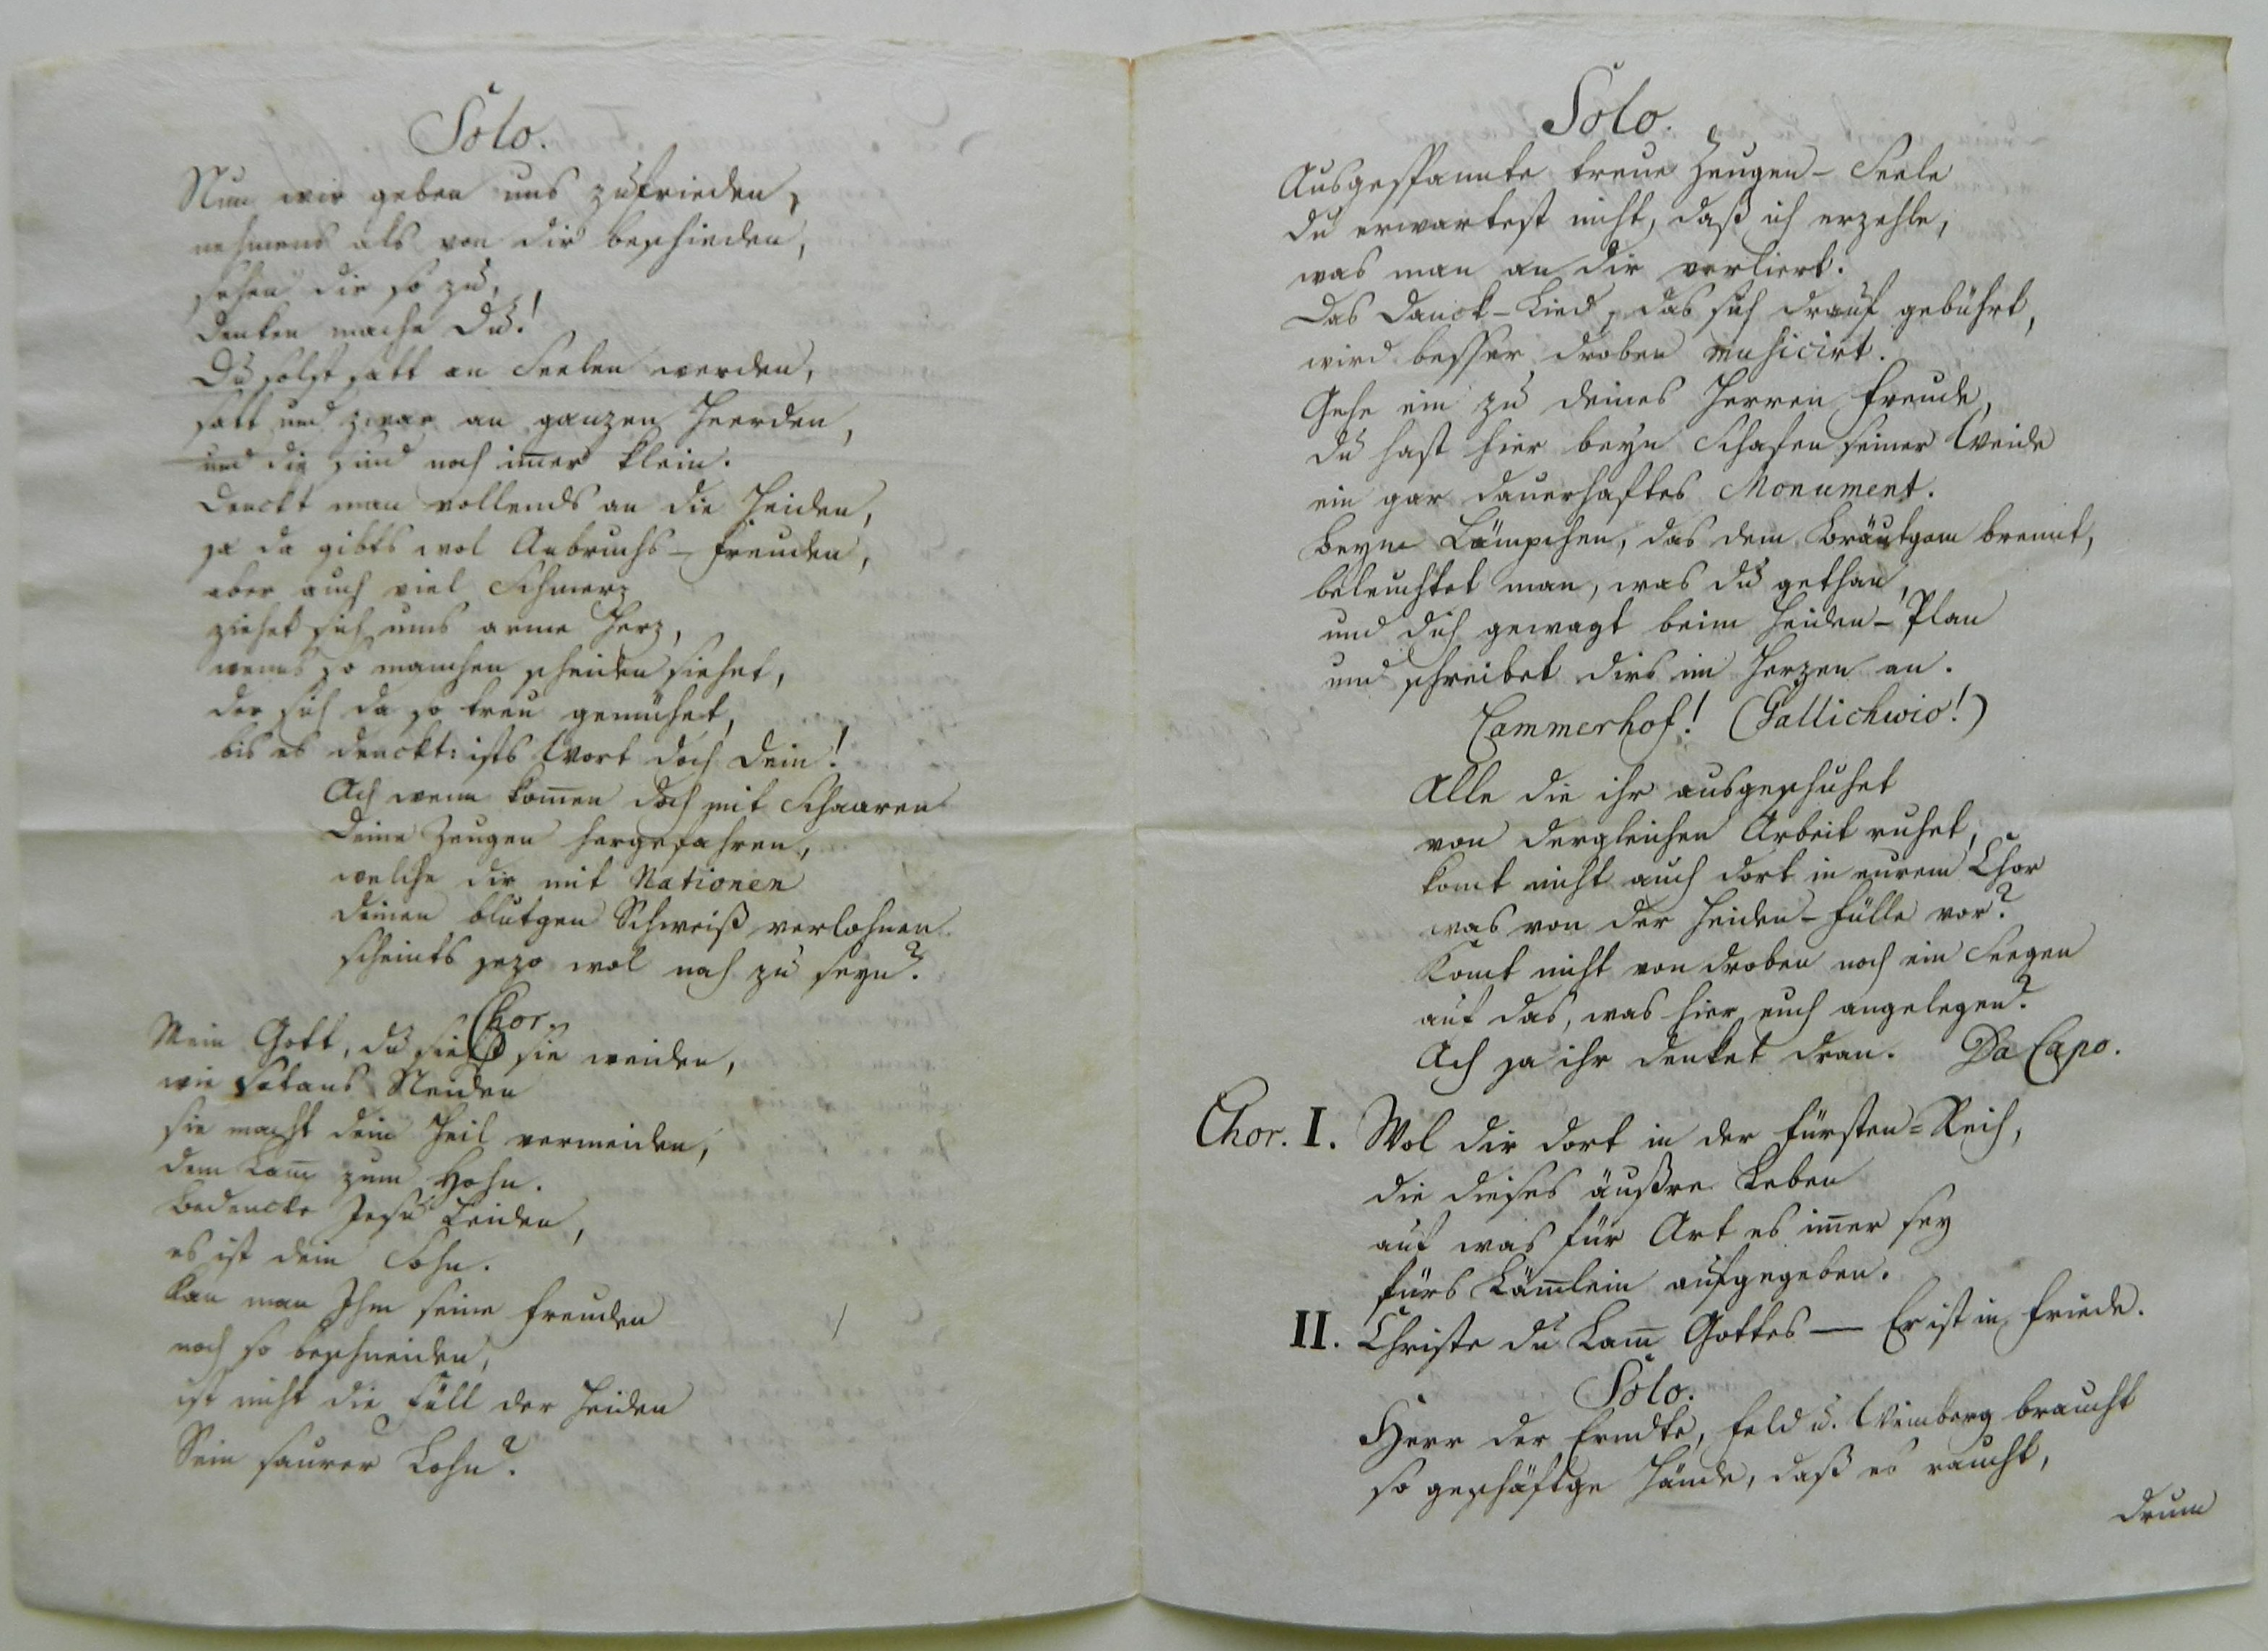 Solo.
Nun wir geben uns zufrieden,
nehmens als von dir beschieden,
sehen dir so zu,
denken mache du!
Du solst satt an Seelen werden,
satt und zwar an ganzen Heerden,
und die sind noch im̅er klein.
Denckt man vollends an die Heiden,
ja da gibts wol Anbruchs-Freuden,
aber auch viel Schmerz
ziehet sich ums arme Herz,
wenns so manchen scheiden siehet,
der sich da so treu gemühet,
bis es denckt: ists Wort doch dein!
Ach wenn kom̅en doch mit Schaaren
deine Zeugen hergefahren,
welche dir mit Nationen
deinen blutgen Schweiß verlohnen
scheints jezo wol nah zu seyn?
Chor.
Mein Gott, du siehst sie weiden,
wie Satans Neiden
sie macht dein Heil vermeiden,
dem Lam̅ zum Hohn.
Bedencke Jesu Leiden,
es ist dein Sohn.
Kan man Ihm seine Freuden
noch so beschneiden,
ist nicht die Füll der Heiden
Sein saurer Lohn?
Solo.
Ausgespannte treue Zeugen-Seele
du erwartest nicht, daß ich erzehle,
was man an dir verliert.
Das Danck-Lied, das sich drauf gebührt,
wird besser droben musicirt.
Gehe ein zu deines Herren Freude,
du hast hier beyn Schafen seiner Weide
ein gar dauerhaftes Monument.
Beym Lämpchen, das dem Bräutgam brennt,
beleuchtet man, was du gethan,
und dich gewagt beim Heiden-Plan
und schreibet dirs im Herzen an.
Cammerhof! (Gallichwio!)
Alle die ihr ausgeschuhet
von dergleichen Arbeit ruhet,
komt nicht auch dort in eurem Chor
was von der Heiden-Fülle vor?
Komt nicht von droben noch ein Seegen
auf das, was hier euch angelegen?
Ach ja ihr denket dran. Da Capo.
Chor. I. Wol dir dort in der Fürsten-Reih,
die dieses äußre Leben
auf was für Art es im̅er sey
fürs Läm̅lein aufgegeben.
II. Christe du Lam̅ Gottes — Er ist in Friede.
Solo.
Herr der Erndte, Feld u. Weinberg braucht
so geschäftge Hände, daß es raucht,
drum